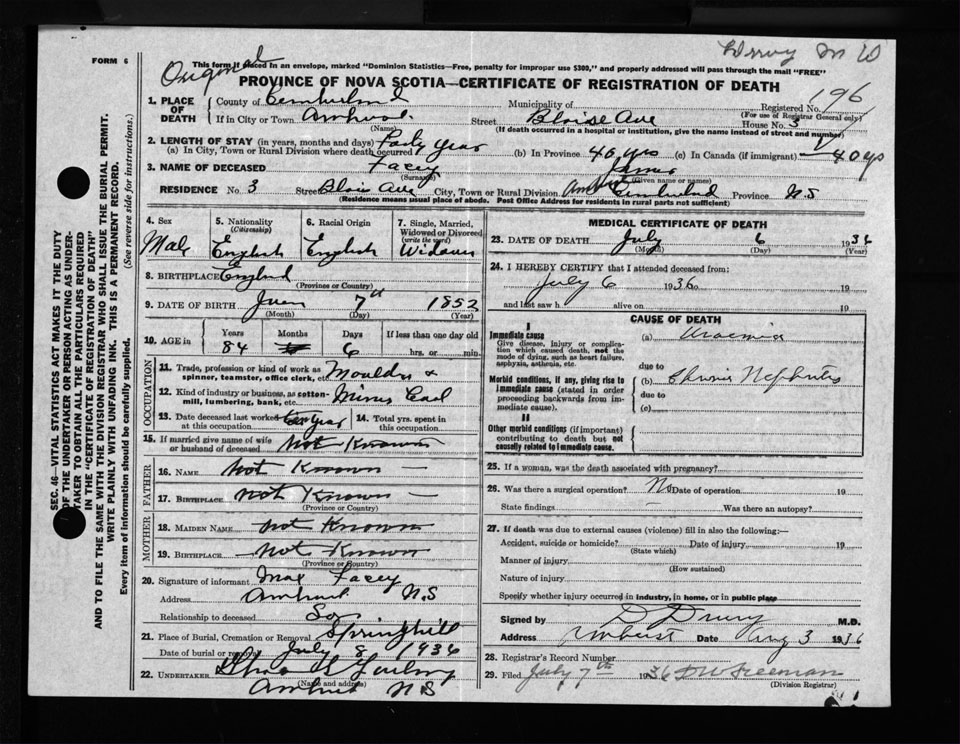 FORM 6
Original
Drury M D
This form if placed in an envelope, marked "Dominion Statistics—Free, penalty for improper use $300," and properly addressed will pass through the mail "FREE"
PROVINCE OF NOVA SCOTIA—CERTIFICATE OF REGISTRATION OF DEATH
1. PLACE OF DEATH
County of Cumberland Municipality of Registered No. 196
(For use of Registrar General only)
If in City or Town Amherst Street Blaise Ave House No. 3
(Name) (If death occurred in a hospital or institution, give the name instead of street and number)
2. LENGTH OF STAY (in years, months and days)
(a) In City, Town or Rural Division where death occurred Forty Year (b) In Province 40 yrs (c) In Canada (if immigrant) 40 yrs
3. NAME OF DECEASED Facey James
(Surname) (Given name or names)
RESIDENCE No. 3 Street Blais Ave City, Town or Rural Division Amherst Cumberland Province N.S
(Residence means usual place of abode. Post Office Address for residents in rural parts not sufficient)
4. Sex
Male
5. Nationality
(Citizenship)
English
6. Racial Origin
English
7. Single, Married, Widowed or Divorced
(write the word)
8. BIRTHPLACE England
(Province or Country)
9. DATE OF BIRTH 7th 1852
(Month) (Day) (Year)
10. AGE in
Years Months Days If less than one day old
84 6 hrs. or min.
OCCUPATION
11. Trade, profession or kind of work as spinner, teamster, office clerk, etc. Moulder
12. Kind of industry or business, as cotton-mill, lumbering, bank, etc. Mines
13. Date deceased last worked at this occupation 14. Total yrs. spent in this occupation
15. If married give name of wife or husband of deceased Not Known
FATHER
16. NAME Not Known
17. BIRTHPLACE Not Known
(Province or Country)
MOTHER
18. MAIDEN NAME Not Known
19. BIRTHPLACE Not Known
(Province or Country)
20. Signature of informant Max Facey
Address Amherst N.S
Relationship to deceased Son
21. Place of Burial, Cremation or Removal Springhill
Date of burial or removal July 8 1936
22. UNDERTAKER
Amherst N S
(Name and address)
MEDICAL CERTIFICATE OF DEATH
23. DATE OF DEATH July 6 1936
(Month) (Day) (Year)
24. I HEREBY CERTIFY that I attended deceased from:
July 6 1936 to 19
and last saw h alive on 19
CAUSE OF DEATH
I
Immediate cause
Give disease, injury or complication which caused death, not the mode of dying, such as heart failure, asphyxia, asthenia, etc.
(a) Uraemia
due to
Morbid conditions, if any, giving rise to immediate cause (stated in order proceeding backwards from immediate cause).
(b) Chronic Nephritis
due to
(c)
II
Other morbid conditions (if important) contributing to death but not causally related to immediate cause.
25. If a woman, was the death associated with pregnancy?
26. Was there a surgical operation? No Date of operation 19
State findings Was there an autopsy?
27. If death was due to external causes (violence) fill in also the following:—
Accident, suicide or homicide? Date of injury 19
(State which)
Manner of injury
(How sustained)
Nature of injury
Specify whether injury occurred in industry, in home, or in public place
Signed by D Drury M.D.
Address Amherst Date Aug 3 1936
28. Registrar's Record Number
29. Filed July 7th 1936 Freeman
(Division Registrar)
SEC. 46—VITAL STATISTICS ACT MAKES IT THE DUTY
OF THE UNDERTAKER OR PERSON ACTING AS UNDER-
TAKER TO OBTAIN ALL THE PARTICULARS REQUIRED
IN THE "CERTIFICATE OF REGISTRATION OF DEATH"
AND TO FILE THE SAME WITH THE DIVISION REGISTRAR WHO SHALL ISSUE THE BURIAL PERMIT.
WRITE PLAINLY WITH UNFADING INK. THIS IS A PERMANENT RECORD.
Every item of information should be carefully supplied. (See reverse side for instructions.)